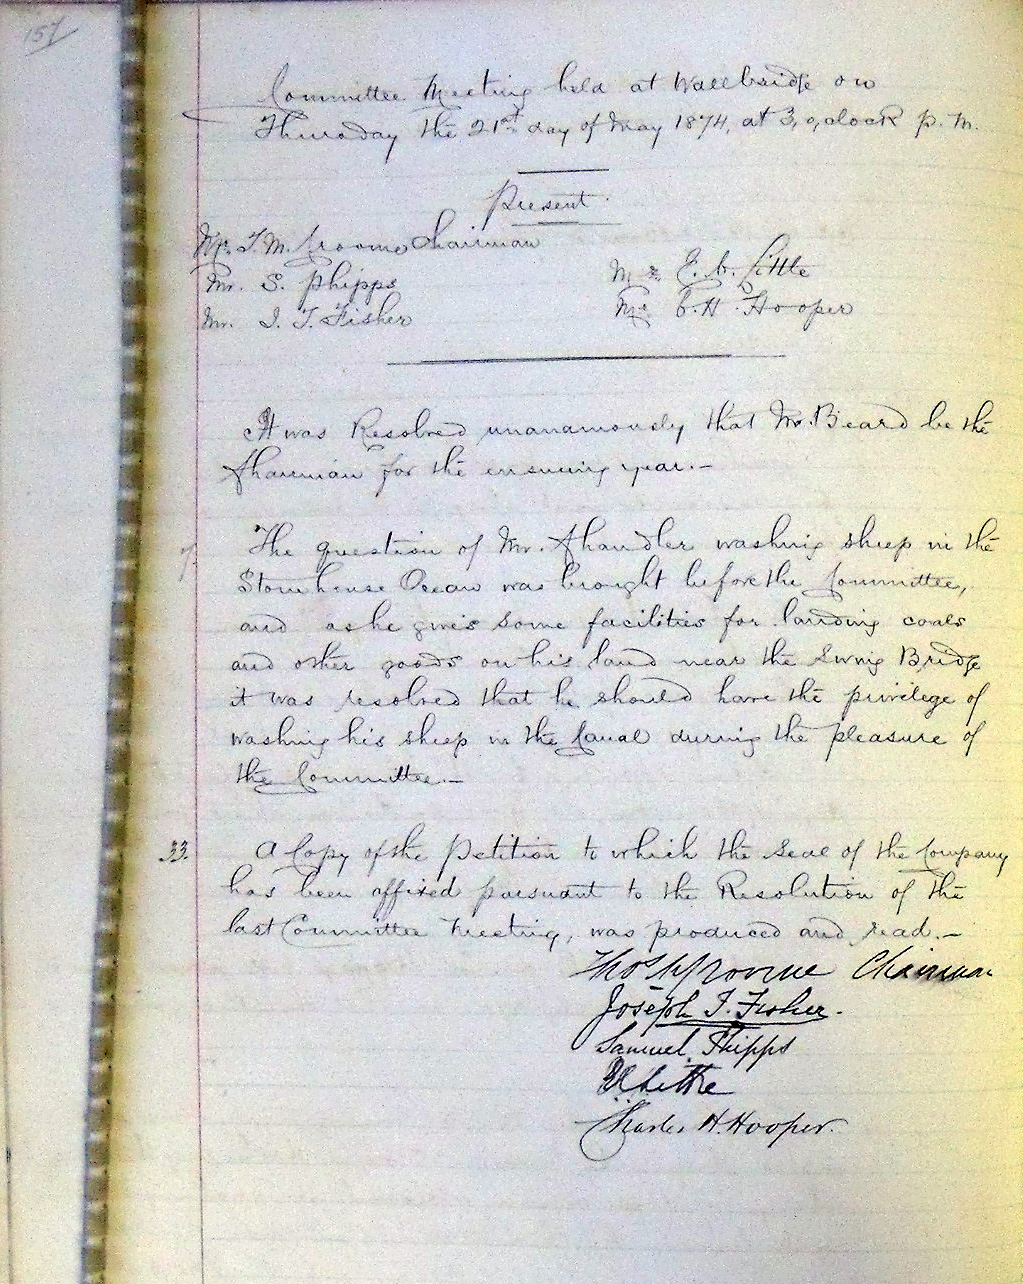 157
Committee Meeting held at Wallbridge on
Thursday the 21st day of May 1874, at 3, o,clock p.m.
Present
Mr. T. M. Croome Chairman
Mr. S. Phipps
Mr. J. T. Fisher
Mr. E. C. Little
Mr. C. H. Hooper
It was Resolved unanamously that Mr. Beard be the
Chairman for the ensuing year.—
7. The question of Mr. Chandler washing sheep in the
Stonehouse Ocean was brought before the Committee,
and as he gives some facilities for landing coals
and other goods on his land near the Swing Bridge
it was resolved that he should have the privilege of
washing his sheep in the Canal during the pleasure of
the Committee.—
33. A Copy of the Petition to which the Seal of the Company
has been affixed pursuant to the Resolution of the
last Committee Meeting, was produced and read.—
Thos M Croome Chairman
Joseph T. Fisher.
Samuel Phipps
E C Little
Charles H. Hooper.